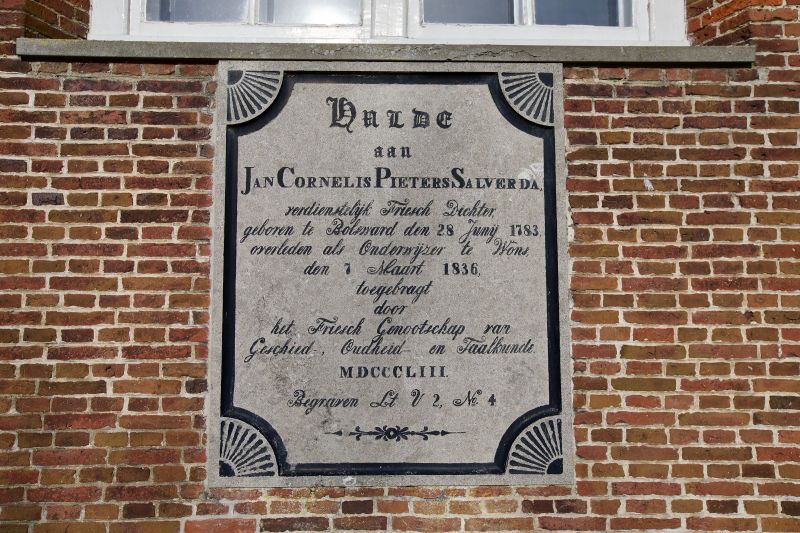 Hulde
aan
Jan Cornelis Pieters Salverda,
verdienstelijk Friesch Dichter,
geboren te Bolsward den 28 Junij 1783.
overleden als Onderwijzer te Wons,
den 7 Maart 1836,
toegebragt
door
het Friesch Genootschap van
Geschied-, Oudheid- en Taalkunde.
MDCCCLIII.
Begraven Lt V 2, No 4